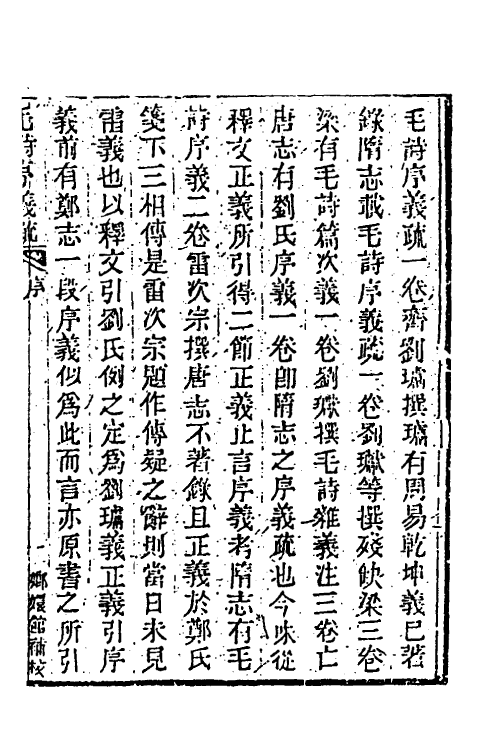 毛詩序義疏一卷齊劉瓛撰瓛有周易乾坤義已著
錄隋志載毛詩序義疏一卷劉瓛等撰殘缺梁三卷
梁有毛詩篇次義一卷劉瓛撰毛詩雜義注三卷亡
唐志有劉氏序義一卷卽隋志之序義疏也今味從
釋文正義所引得二節正義止言序義考隋志有毛
詩序義二卷雷次宗撰唐志不著錄且正義於鄭氏
箋下三相傳是雷次宗題作傳疑之辭則當日未見
雷義也以釋文引劉氏例之定爲劉瓛義正義引序
義前有鄭志一段序義似爲此而言亦原書之所引
毛詩序義疏 序 一 嫏嬛館補校